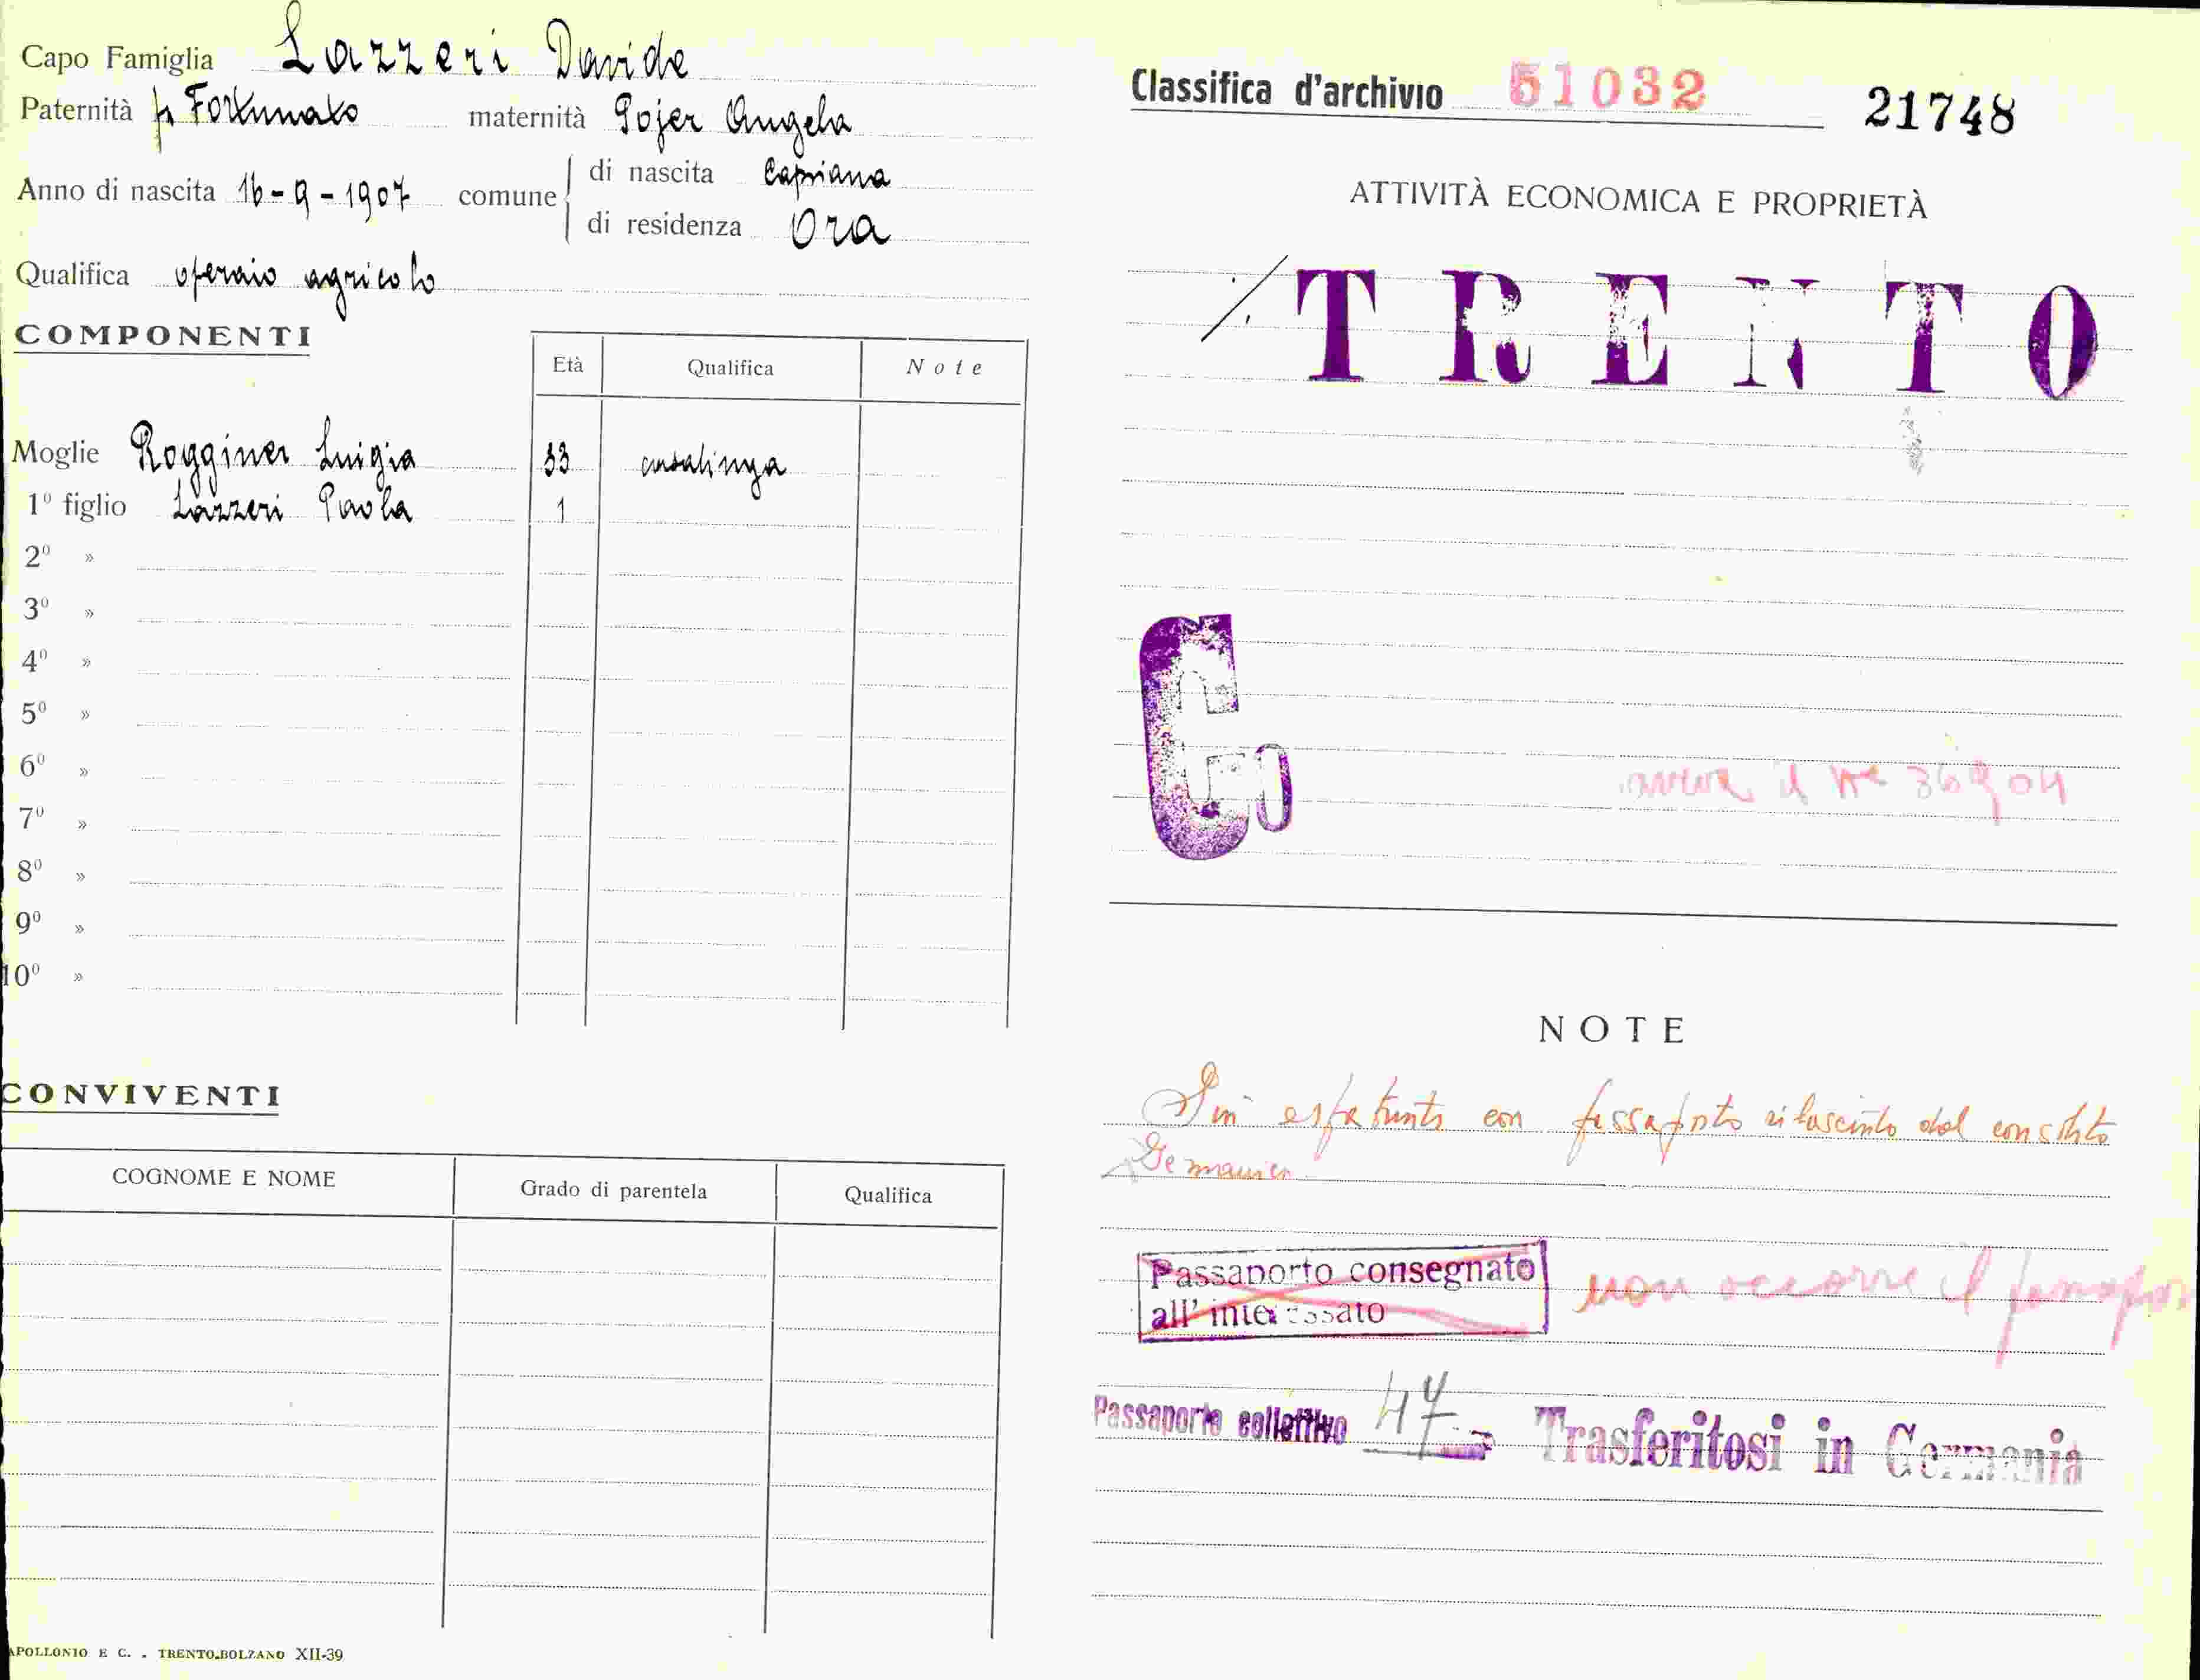 Capo Famiglia Lazzeri Davide
Paternità fu Fortunato maternità Pojer Angela
Anno di nascita 16-9-1907 comune di nascita Capriana
di residenza Ora
Qualifica operaio agricolo
COMPONENTI
Età Qualifica Note
Moglie Rogginer Luigia 33 casalinga
1º figlio Lazzeri Paola 1
2º »
3º »
4º »
5º »
6º »
7º »
8º »
9º »
10º »
CONVIVENTI
COGNOME E NOME Grado di parentela Qualifica
APOLLONIO E C. - TRENTO-BOLZANO XII-39
Classifica d'archivio 51032 21748
ATTIVITÀ ECONOMICA E PROPRIETÀ
TRENTO
C
il nº 36904
NOTE
Già espatriato con passaporto rilasciato dal consolato
Germanico
Passaporto consegnato
all'interessato
non occorre il passapor
Passaporto collettivo 47 Trasferitosi in Germania